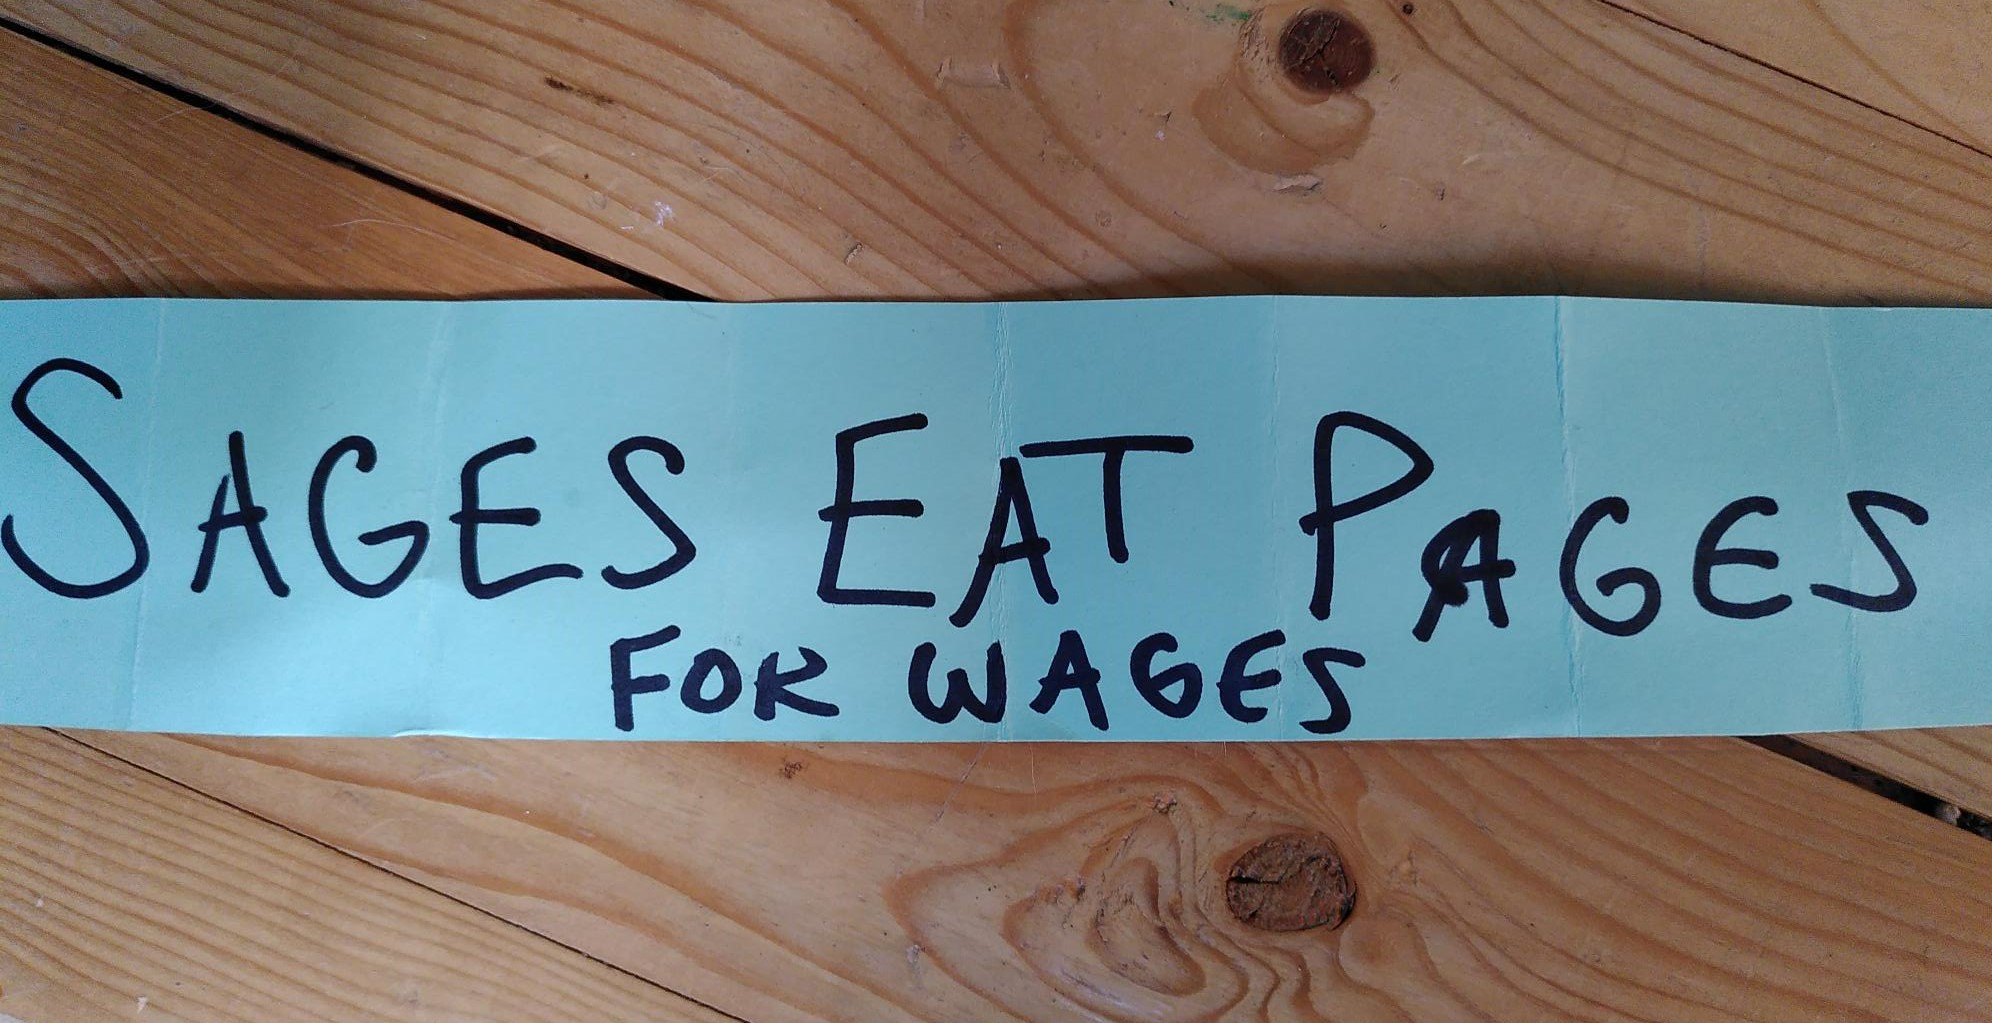 SAGES EAT PAGES
FOR WAGES